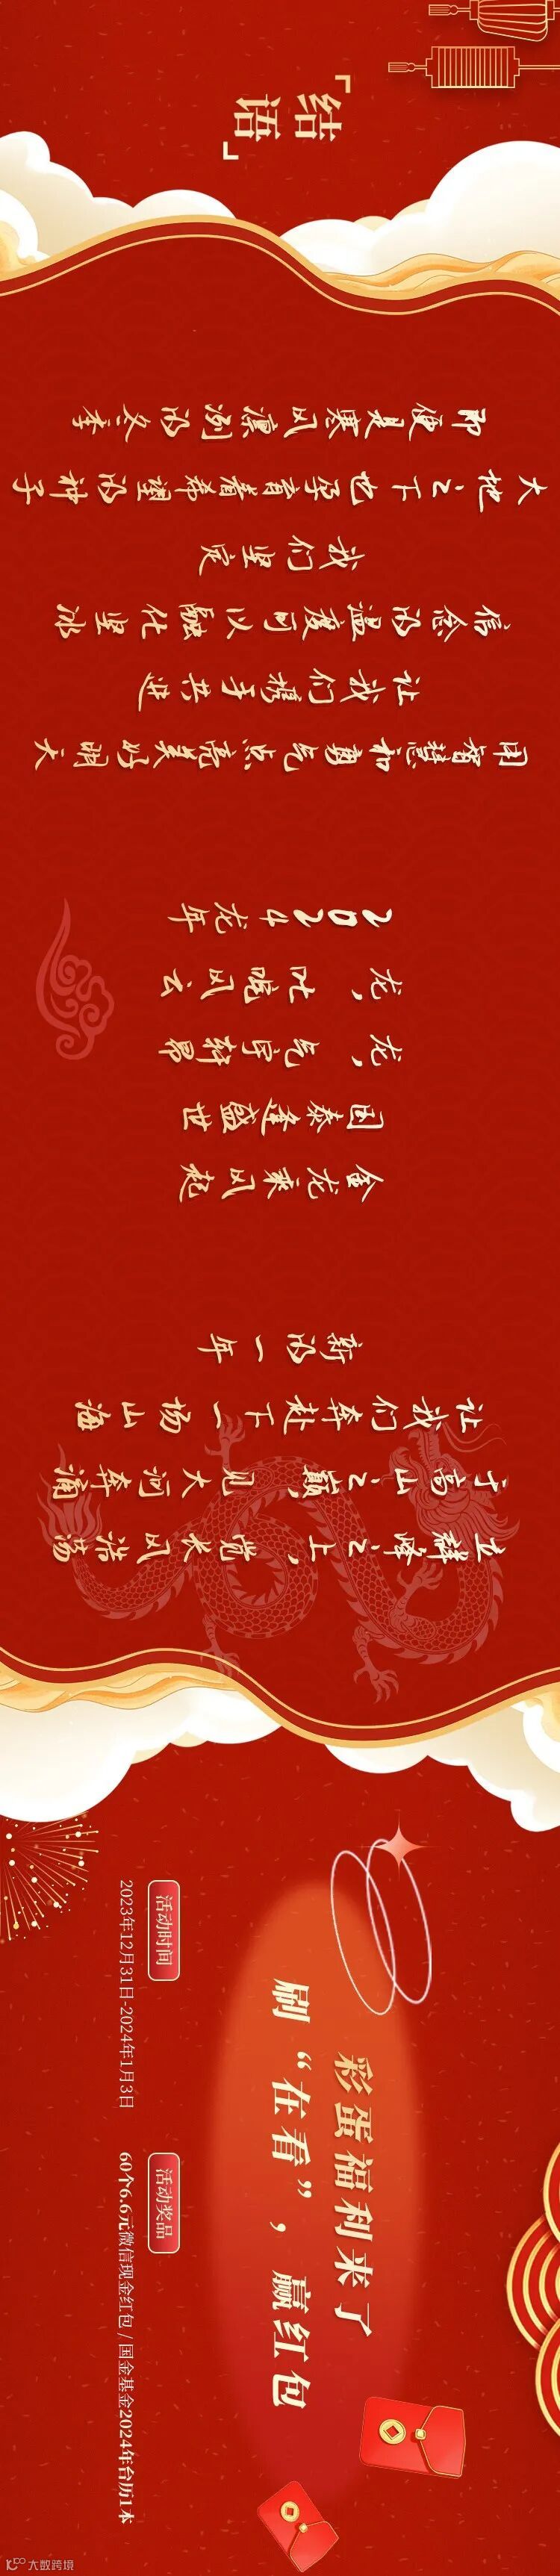 「结语」
即便是寒风凛冽的冬季
大地之下也孕育着希望的种子
我们坚定
信念的温度可以融化坚冰
让我们携手共进
用智慧和勇气点亮美好明天
2024龙年
龙，叱咤风云
龙，气宇轩昂
国泰逢盛世
金龙乘风起
新的一年
让我们奔赴下一场山海
于高山之巅，见大河奔涌
立群峰之上，觉长风浩荡
彩蛋福利来了
刷“在看”，赢红包
活动时间
2023年12月31日-2024年1月3日
活动奖品
60个6.6元微信现金红包 / 国金基金2024年台历1本
大数跨境